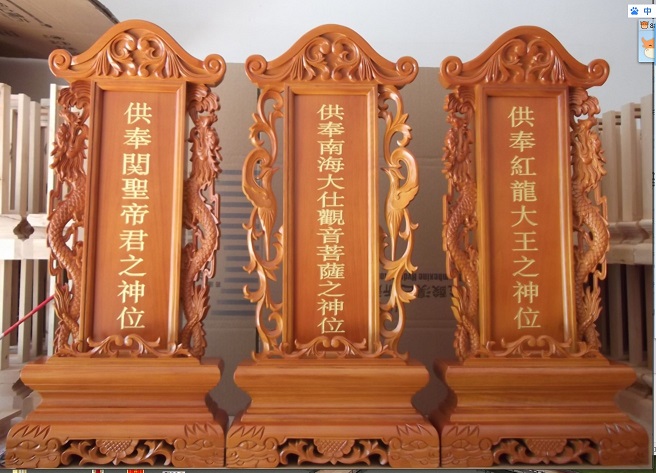 供奉関聖帝君之神位
供奉南海大仕觀音菩薩之神位
供奉紅龍大王之神位
中